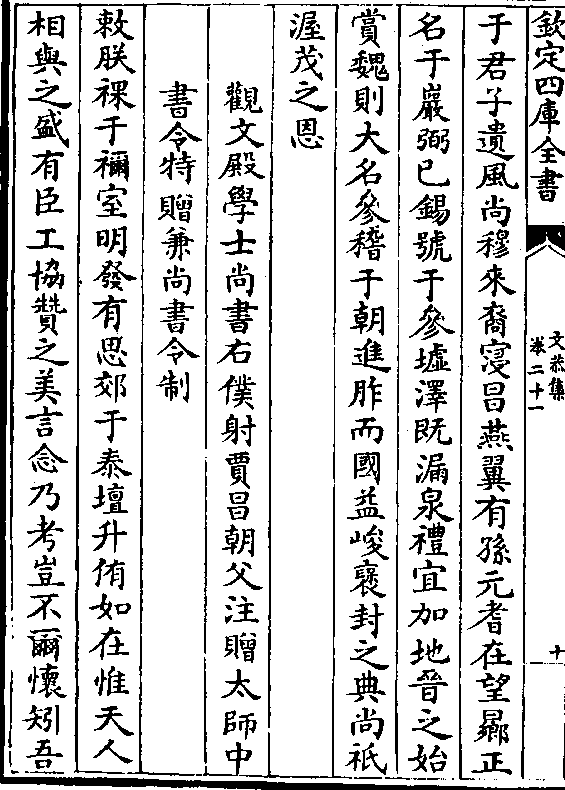 欽定四庫全書
文恭集
卷二十一
十
于君子遺風尚穆來裔寖昌燕翼有孫元耆在望曏正
名于巖弼已錫號于參墟澤既漏泉禮宜加地晉之始
賞魏則大名參稽于朝進胙而國益峻褒封之典尚祇
渥茂之恩
觀文殿學士尚書右僕射賈昌朝父注贈太師中
書令特贈兼尚書令制
敕朕祼于禰室明發有思郊于泰壇升侑如在惟天人
相與之盛有臣工協贊之美言念乃考豈不爾懷矧吾